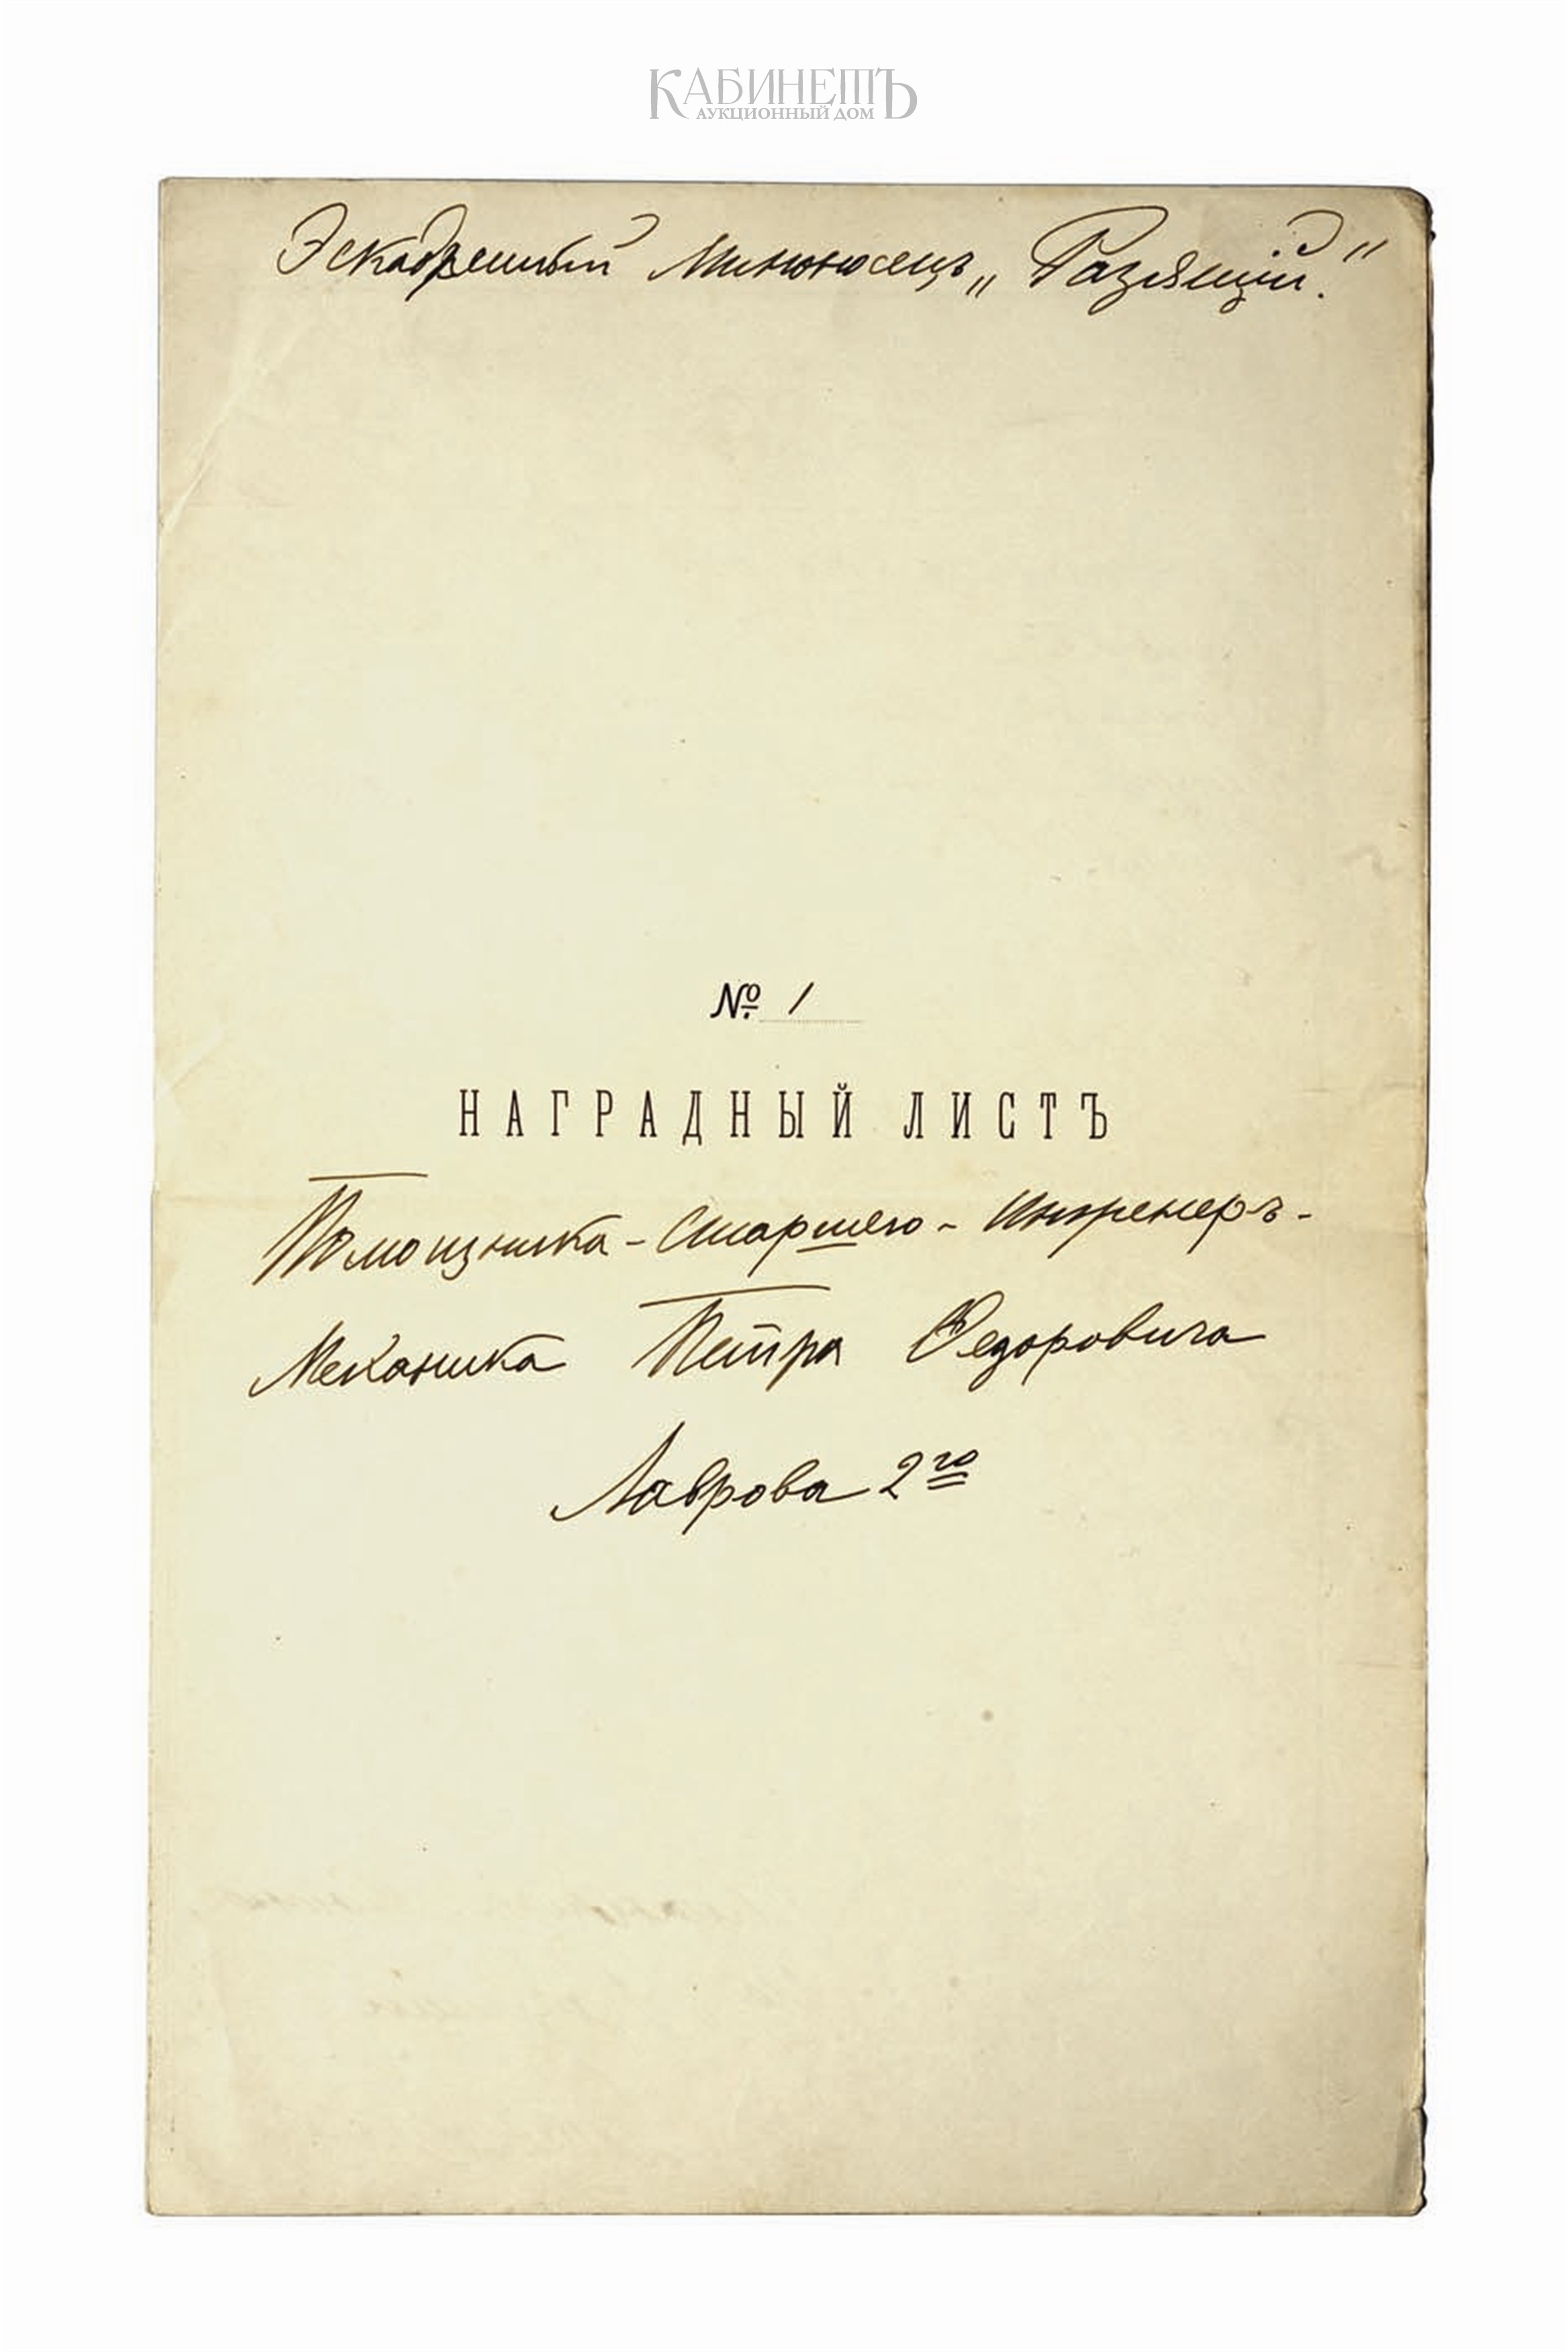 КАБИНЕТЪ
АУКЦИОННЫЙ ДОМ
Эскадренный Миноносецъ „Разящій."
№ 1
НАГРАДНЫЙ ЛИСТЪ
Помощника - Старшего - Инженеръ-
Механика Петра Федоровича
Лаврова 2го